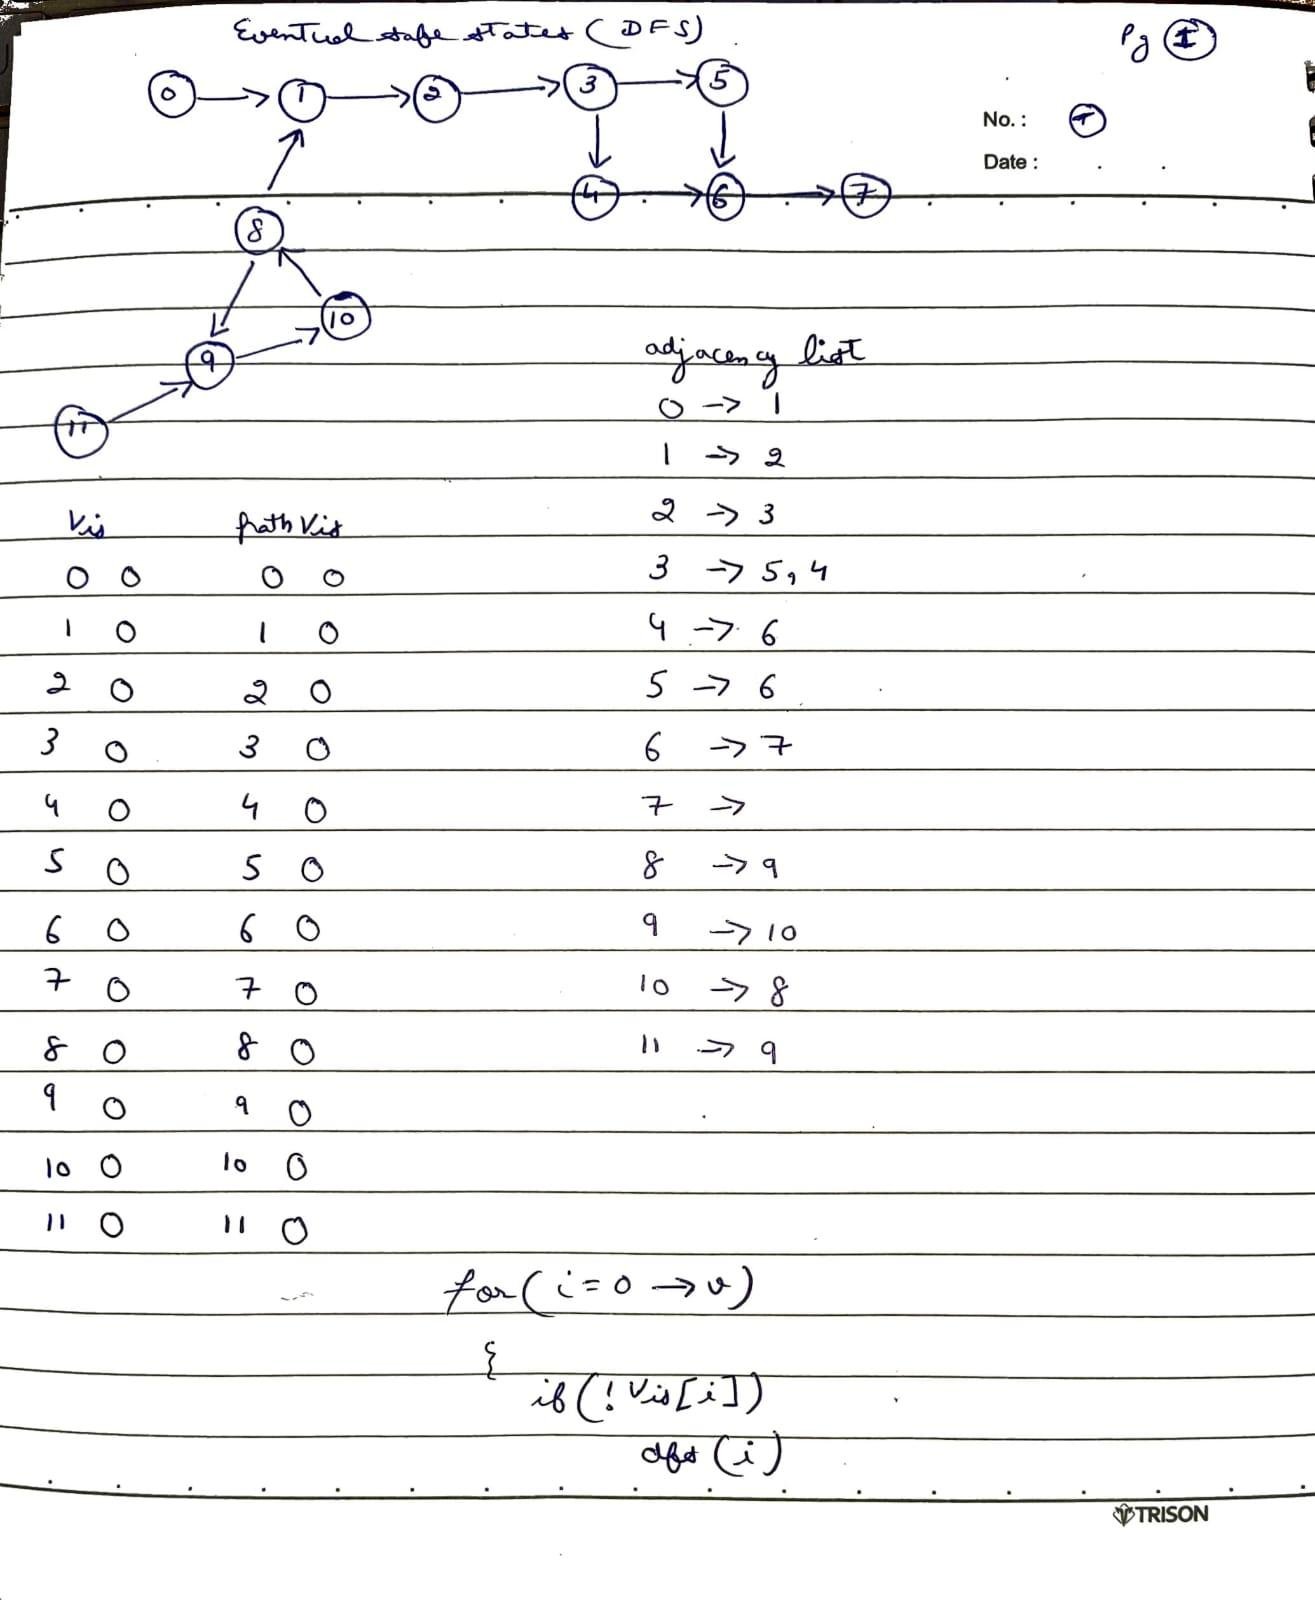 Eventual safe states (DFS)
Pg I
0 → 1 → 2 → 3 → 5
No. : T
Date :
4 → 6 → 7
8
10
9
11
adjacency list
0 → 1
1 → 2
2 → 3
3 → 5, 4
4 → 6
5 → 6
6 → 7
7 →
8 → 9
9 → 10
10 → 8
11 → 9
Vis pathVis
0 0 0 0
1 0 1 0
2 0 2 0
3 0 3 0
4 0 4 0
5 0 5 0
6 0 6 0
7 0 7 0
8 0 8 0
9 0 9 0
10 0 10 0
11 0 11 0
for(i=0 → v)
{
if(!Vis[i])
dfs(i)
TRISON